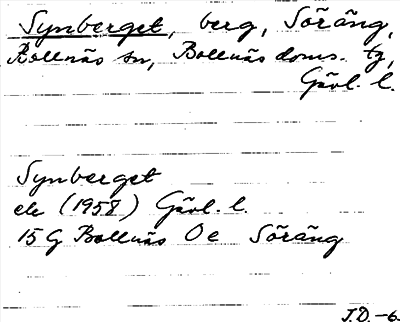 Synberget, berg, Söräng,
Bollnäs sn, Bollnäs doms. tg,
Gävl. l.
Synberget
ek (1958) Gävl. l.
15 G Bollnäs Oe Söräng
J.D. -6.